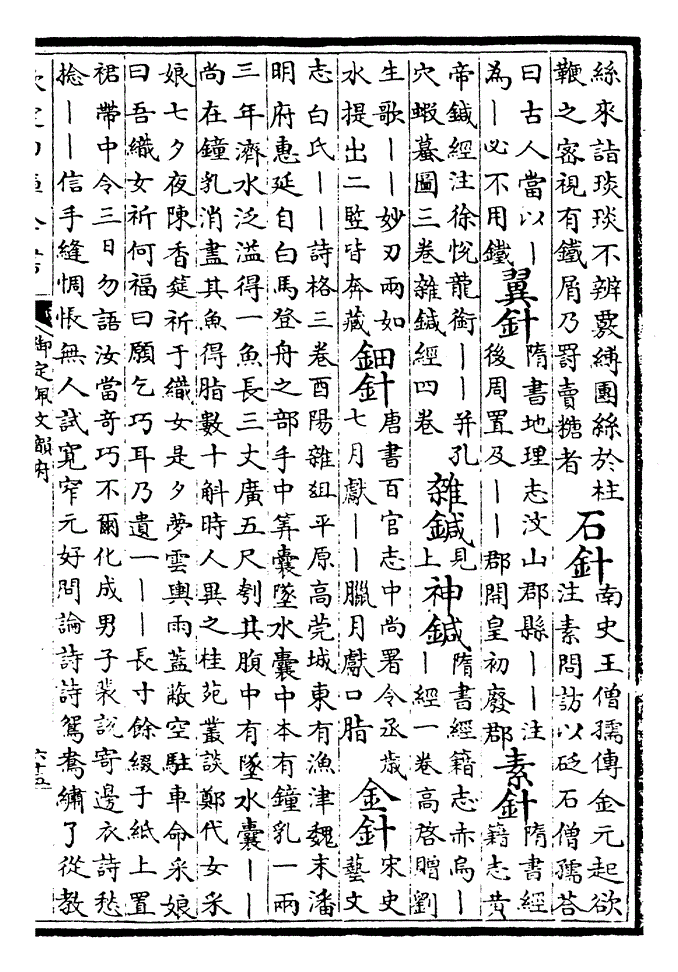 絲來詣琰琰不辨覈縛團絲於柱
鞭之宻視有鐵屑乃罸賣糖者
石針
南史王僧孺傳金元起欲
注素問訪以砭石僧孺荅
曰古人當以丨
為丨必不用鐵
翼針
隋書地理志汶山郡縣丨丨注
後周置及丨丨郡開皇初廢郡
素針
隋書經
籍志黄
帝鍼經注徐悅龍銜丨丨并孔
穴蝦蟇圖三卷雜鍼經四卷
雜鍼
見
上
神鍼
隋書經籍志赤烏丨
丨經一卷高啓贈劉
生歌丨丨妙刃兩如
水提出二竪皆奔藏
鈿針
唐書百官志中尚署令丞歳
七月獻丨丨臘月獻口脂
金針
宋史
藝文
志白氏丨丨詩格三卷酉陽雜俎平原高莞城東有漁津魏末潘
明府惠延自白馬登舟之部手中筭囊墜水囊中本有鐘乳一兩
三年濟水泛溢得一魚長三丈廣五尺刳其腹中有墜水囊丨丨
尚在鐘乳消盡其魚得脂數十斛時人異之桂苑叢談鄭代女采
娘七夕夜陳香筵祈于織女是夕夢雲輿雨蓋蔽空駐車命采娘
曰吾織女祈何福曰願乞巧耳乃遺一丨丨長寸餘綴于紙上置
裙帶中令三日勿語汝當奇巧不爾化成男子裴說寄邊衣詩愁
捻丨丨信手縫惆悵無人試寛窄元好問論詩詩鴛鴦繡了從教
御定佩文韻府
六十五